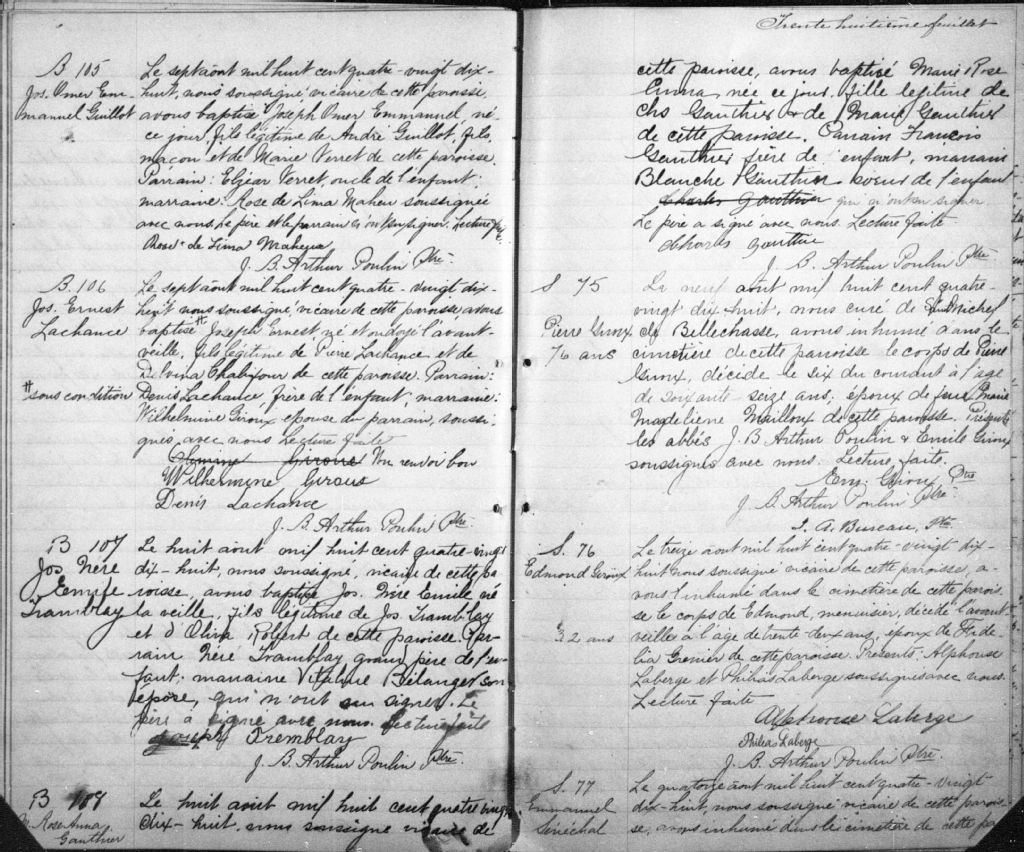 B 105
Jos. Omer Em-
manuel Guillot
Le sept août mil huit cent quatre-vingt dix-
huit, nous soussigné vicaire de cette paroisse,
avons baptisé Joseph Omer Emmanuel, né
ce jour, fils légitime de André Guillot, fils,
maçon et de Marie Verret de cette paroisse.
Parrain: Elzéar Verret, oncle de l'enfant;
marraine: Rose de Lima Maheu soussignée
avec nous. Le père et le parrain n'ont su signer. Lecture faite
Rose de Lima Maheu
J. B. Arthur Poulin Ptre
B. 106
Jos. Ernest
Lachance
# sous condition
Le sept août mil huit cent quatre-vingt dix-
huit nous soussigné, vicaire de cette paroisse avons
baptisé # Joseph Ernest, né et ondoyé l'avant-
veille, fils légitime de Pierre Lachance et de
Delvina Chabot de cette paroisse. Parrain:
Denis Lachance, frère de l'enfant; marraine:
Wilhelmine Giroux épouse du parrain, soussi-
gnés avec nous Lecture faite
Giroux Un renvoi bon
Wilhelmine Giroux
Denis Lachance
J. B. Arthur Poulin Ptre
B 107
Jos. Néré
Emile
Tramblay
Le huit août mil huit cent quatre-vingt
dix-huit, nous soussigné, vicaire de cette pa
roisse, avons baptisé Jos. Néré Emile né
la veille, fils légitime de Jos. Tramblay
et d'Oliva de cette paroisse. Par-
rain Néré Tramblay grand père de l'en-
fant; marraine Vitaline Bélanger son
épouse, qui n'ont su signer. Le
père a signé avec nous. Lecture faite
Joseph Tremblay
J. B. Arthur Poulin Ptre.
B 108
M. Rose Anna
Gauthier
Le huit août mil huit cent quatre vingt
dix-huit, nous soussigné vicaire de
Trente huitième feuillet
cette paroisse, avons baptisé Marie Rose
Emma née ce jour, fille legitime de
Chs Gauthier & de Marie Gauthier
de cette paroisse. Parrain François
Gauthier frère de l'enfant, marraine
Blanche Gauthier soeur de l'enfant
Charles Gauthier qui n'ont su signer
Le père a signé avec nous. Lecture faite
Charles Gauthier
J. B. Arthur Poulin Ptre
S 75
Pierre Giroux
76 ans
Le neuf août mil huit cent quatre-
vingt dix-huit, nous curé de St Michel
de Bellechasse, avons inhumé dans le
cimetière de cette paroisse le corps de Pierre
Giroux, décédé le six du courant à l'age
de soixante seize ans, époux de feue Marie
Magdeliene Mailloux de cette paroisse. Présents
les abbés J. B Arthur Poulin & Emile Giroux
soussignés avec nous. Lecture faite.
Em. Giroux, Ptre
J. B. Arthur Poulin Ptre.
J. A. Bureau, Ptre
S. 76
Edmond Giroux
32 ans
Le treize août mil huit cent quatre-vingt dix-
huit nous soussigné vicaire de cette paroisse, a-
vons inhumé dans le cimetière de cette parois-
se le corps de Edmond, menuisier, décédé l'avant
veille à l'âge de trente deux ans, époux de Fidé-
lia Grenier de cette paroisse. Présents: Alphonse
Laberge et Philias Laberge soussignés avec nous.
Lecture faite
Alphonse Laberge
Philias Laberge
J. B. Arthur Poulin Ptre.
S. 77
Emmanuel
Sénéchal
Le quatorze août mil huit cent quatre-vingt
dix-huit, nous soussigné vicaire de cette parois-
se, avons inhumé dans le cimetière de cette pa